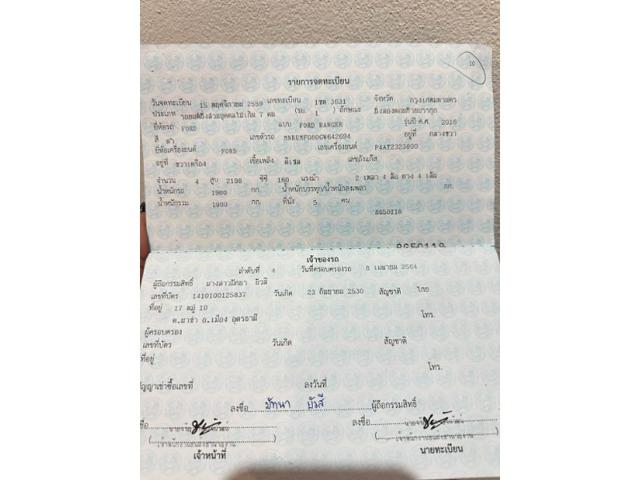 10
รายการจดทะเบียน
วันจดทะเบียน 15 พฤศจิกายน 2559 เลขทะเบียน 1ขต 3631 จังหวัด กรุงเทพมหานคร
ประเภท รถยนต์นั่งส่วนบุคคลไม่เกิน 7 คน (รย. 1 ) ลักษณะ
ยี่ห้อรถ FORD แบบ FORD RANGER รุ่นปี ค.ศ. 2016
สี ดำ เลขตัวรถ อยู่ที่ กลางขวา
ยี่ห้อเครื่องยนต์ FORD เลขเครื่องยนต์ P4AT2323899
อยู่ที่ ขวาเครื่อง เชื้อเพลิง ดีเซล เลขถังแก๊ส
จำนวน 4 สูบ 2198 ซีซี 160 แรงม้า 2 เพลา 4 ล้อ ยาง 4 เส้น
น้ำหนักรถ 1980 กก. น้ำหนักบรรทุก/น้ำหนักลงเพลา กก.
น้ำหนักรวม 1980 กก. ที่นั่ง 5 คน
8650118
8650118
เจ้าของรถ
ลำดับที่ 4 วันที่ครอบครองรถ 8 เมษายน 2564
ผู้ถือกรรมสิทธิ์
เลขที่บัตร 1410100125837 วันเกิด 23 กันยายน 2530 สัญชาติ ไทย
ที่อยู่ 17 หมู่ 10
ต.นาข่า อ.เมือง อุดรธานี โทร.
ผู้ครอบครอง
เลขที่บัตร วันเกิด สัญชาติ
ที่อยู่
โทร.
สัญญาเช่าซื้อเลขที่ ลงวันที่
ลงชื่อ มัทนา ยิวสี ผู้ถือกรรมสิทธิ์
ชื่อ ลงชื่อ
เจ้าหน้าที่ นายทะเบียน